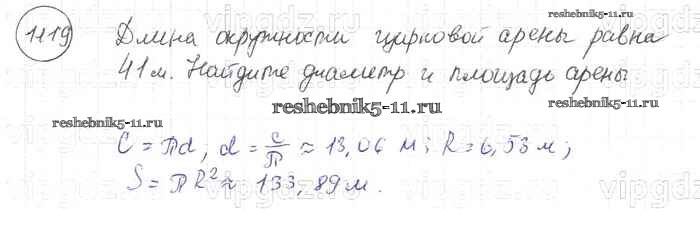 vipgdz.ru vipgdz.ru vipgdz.ru
reshebnik5-11.ru
1119 Длина окружности цирковой арены равна
41 м. Найдите диаметр и площадь арены
reshebnik5-11.ru
reshebnik5-11.ru
reshebnik5-11.ru
C = πd; d = C/π ≈ 13,06 м; R = 6,53 м;
S = πR² ≈ 133,89 м.
vipgdz.ru vipgdz.ru vipgdz.ru